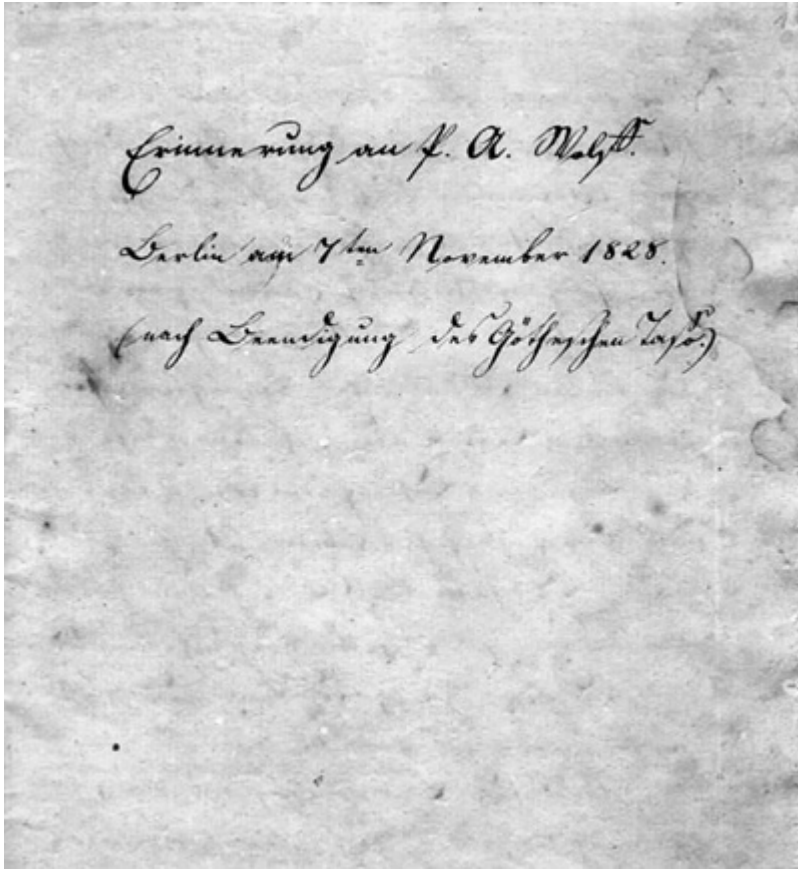 Erinnerung an P. A. Wolff.
Berlin am 7ten November 1828.
(nach Beendigung des Götheschen Tasso.)